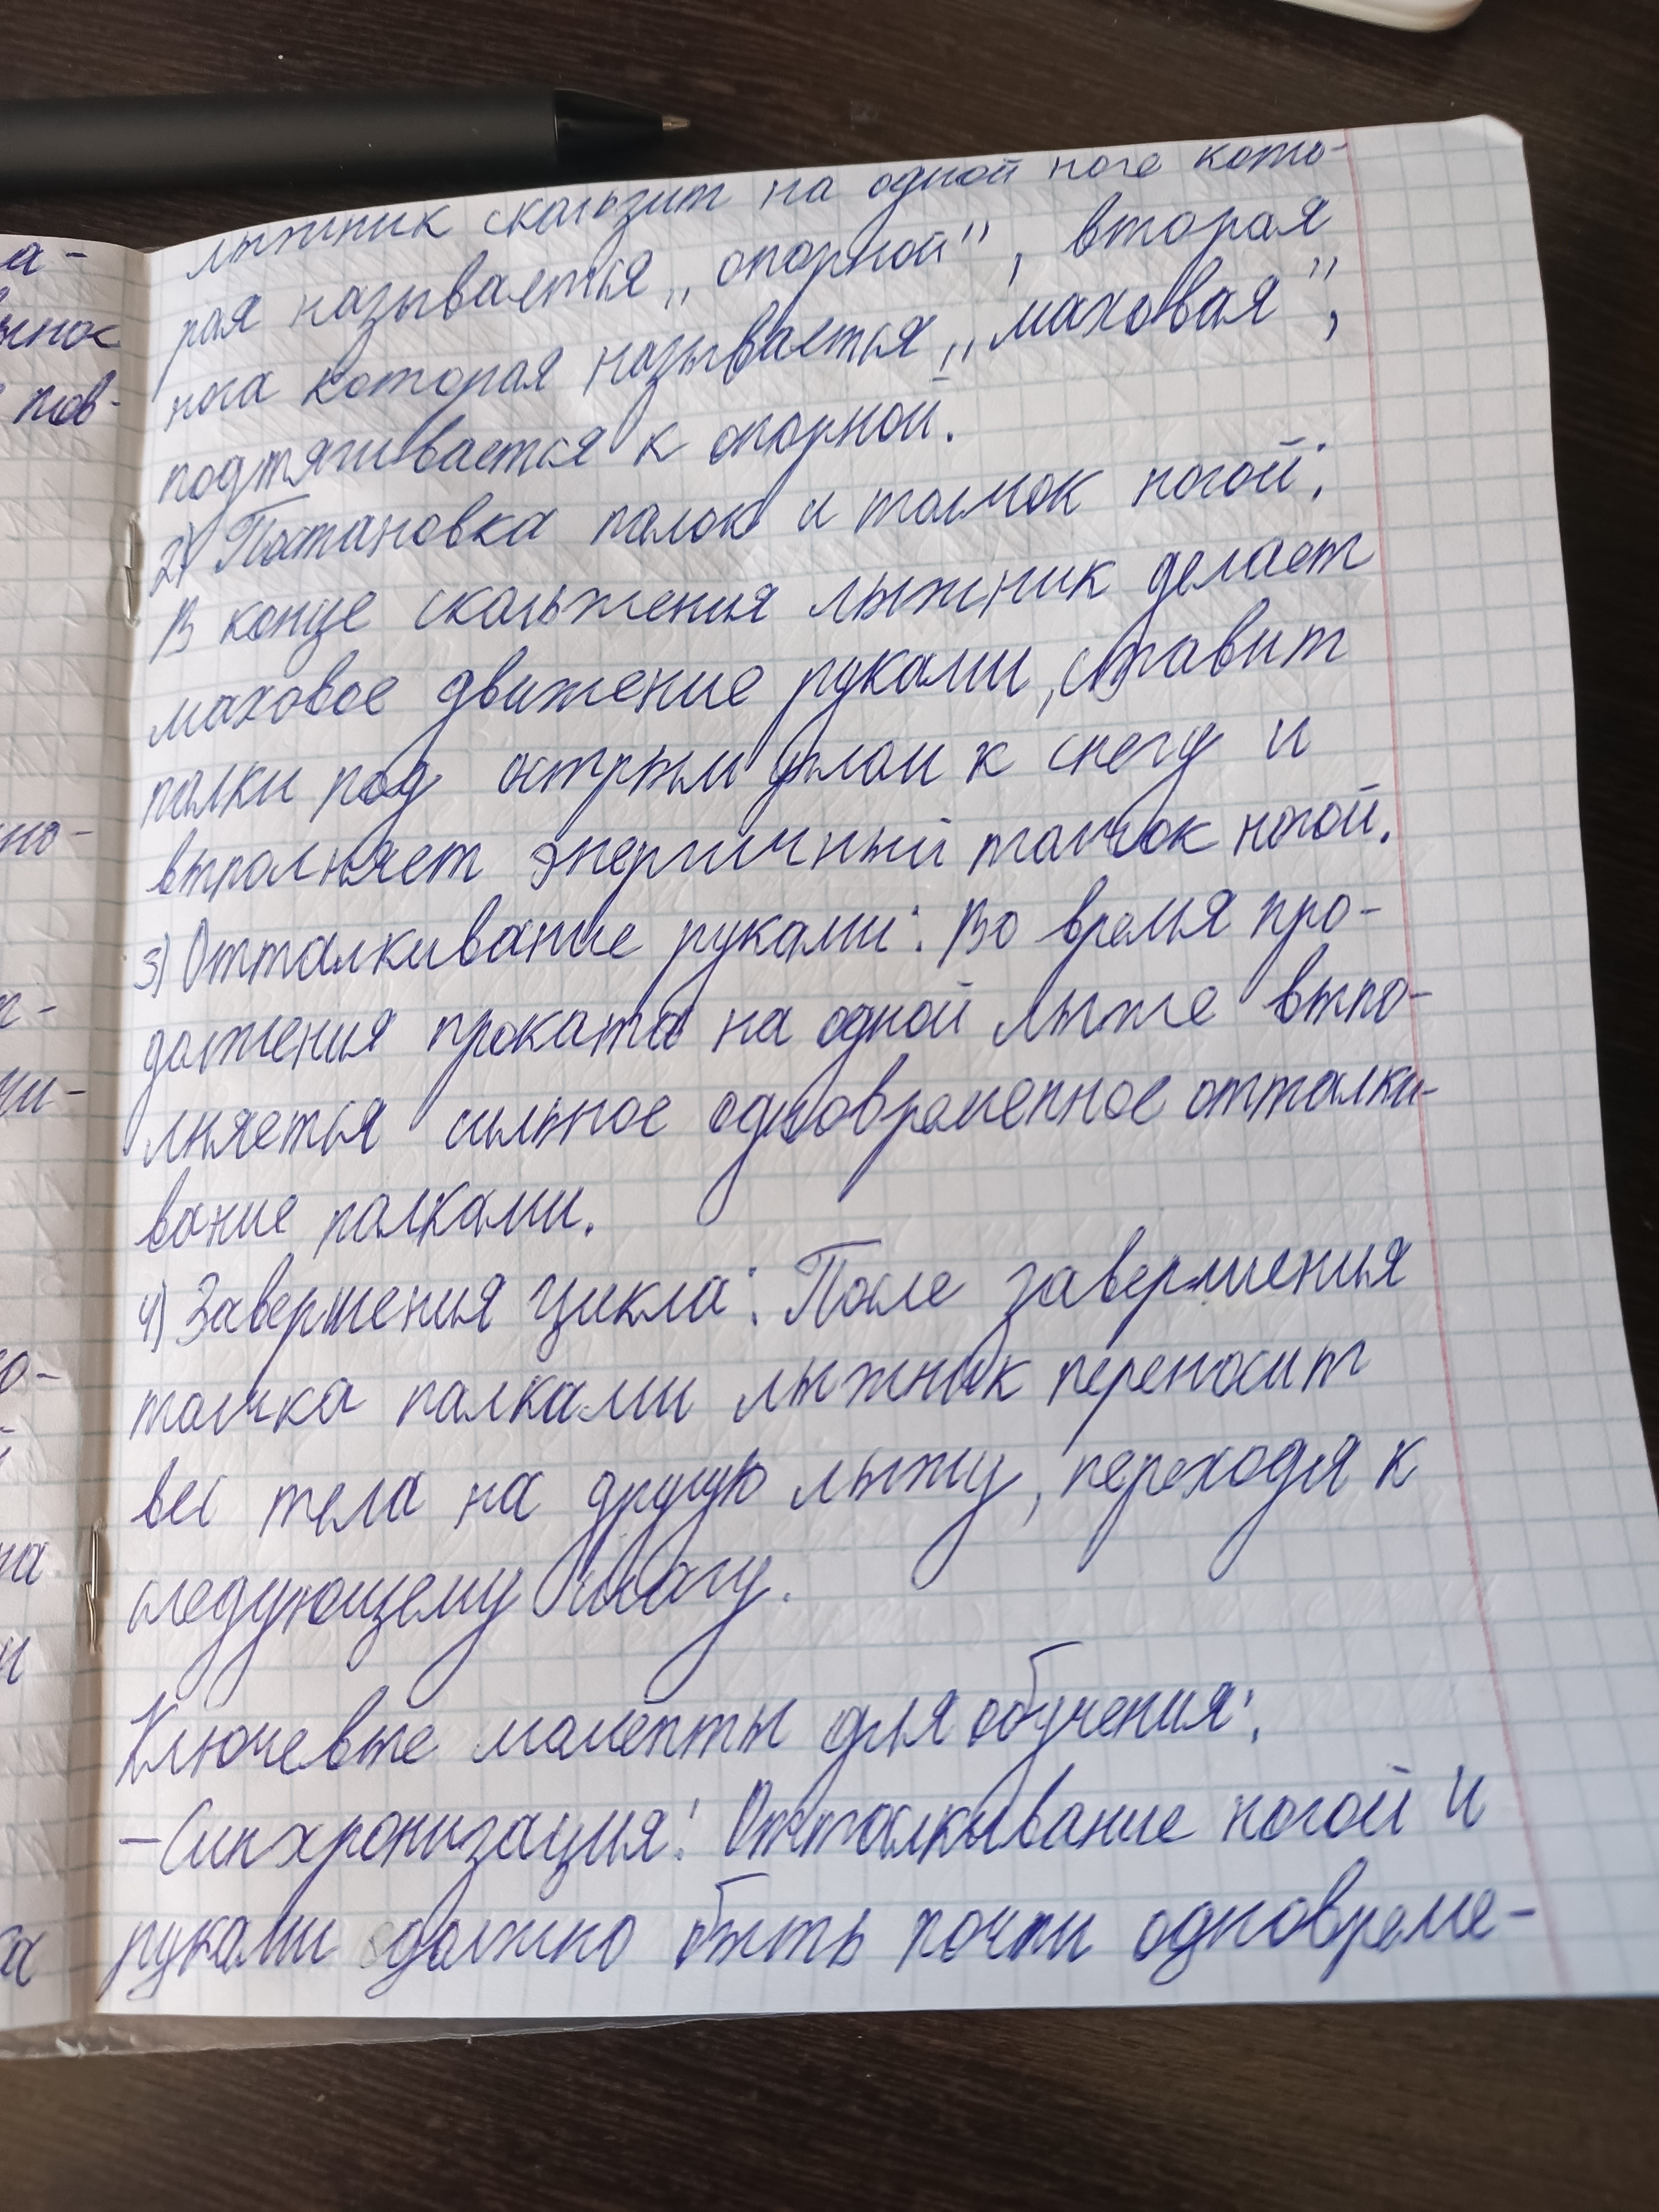 а-
пов-
лыжник скользит на одной ноге кото-
рая называется „опорной", вторая
нога которая называется „маховая",
подтягивается к опорной.
2) Постановка палок и толчок ногой:
В конце скольжения лыжник делает
маховое движение руками, ставит
палки под острым углом к снегу и
выполняет энергичный толчок ногой.
3) Отталкивание руками: Во время про-
должения проката на одной лыже выпо-
лняется сильное одновременное отталки-
вание палками.
4) Завершения цикла: После завершения
толчка палками лыжник переносит
вес тела на другую лыжу, переходя к
следующему шагу.
Ключевые моменты для обучения:
-Синхронизация: Отталкывание ногой и
руками должно быть почти одновреме-